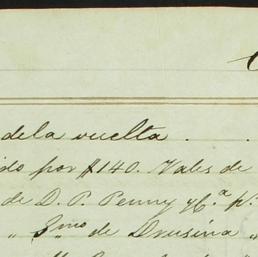 de la vuelta . .
ido por $140. Vales de
de D. P. Penny y Cª. p.
" 3mo de Drusina "